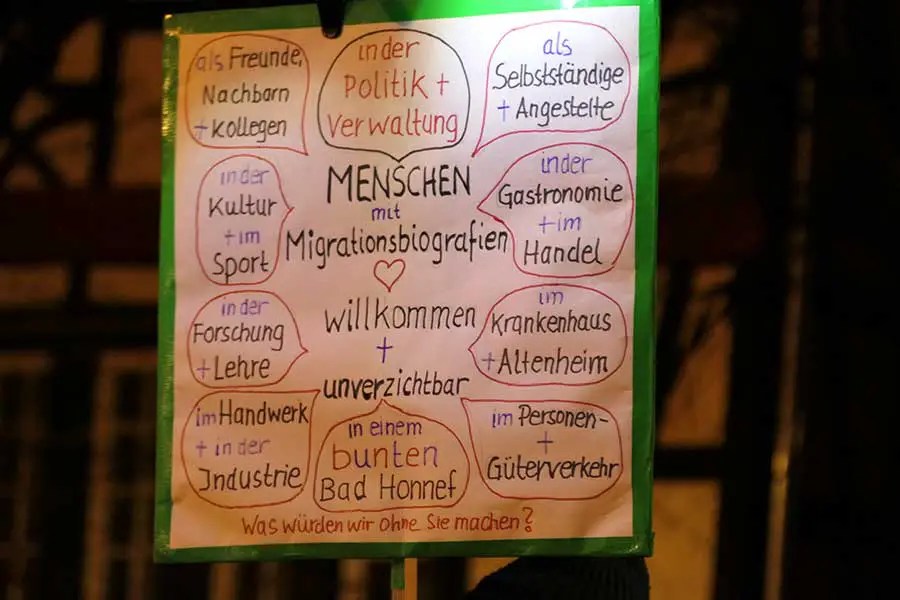 als Freunde,
Nachbarn
+ Kollegen
in der
Politik +
Verwaltung
als
Selbstständige
+ Angestellte
in der
Kultur
+ im
Sport
MENSCHEN
mit
Migrationsbiografien
in der
Gastronomie
+ im
Handel
in der
Forschung
+ Lehre
willkommen
+
unverzichtbar
im
Krankenhaus
+ Altenheim
im Handwerk
+ in der
Industrie
in einem
bunten
Bad Honnef
im Personen-
+
Güterverkehr
Was würden wir ohne Sie machen?